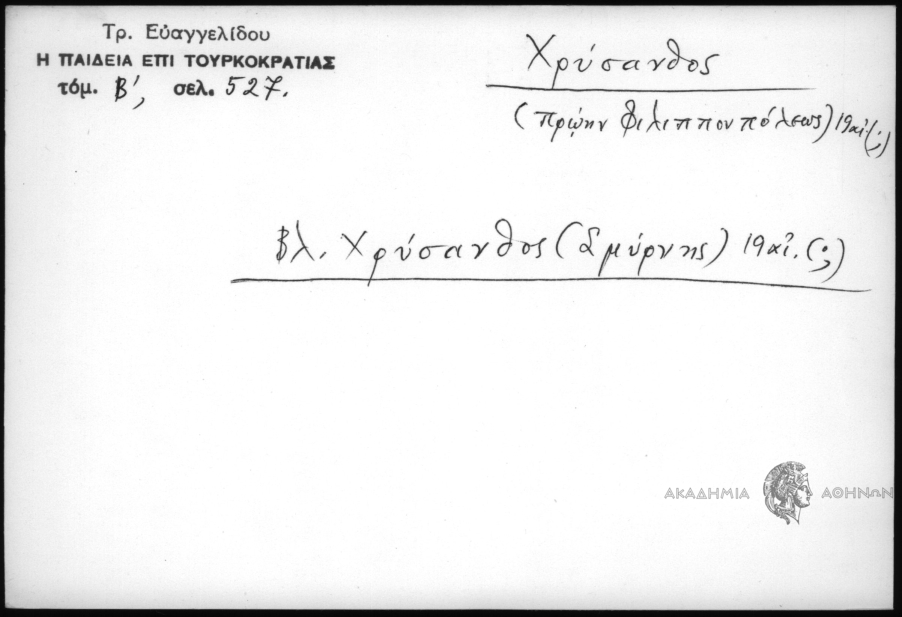 Τρ. Εὐαγγελίδου
Η ΠΑΙΔΕΙΑ ΕΠΙ ΤΟΥΡΚΟΚΡΑΤΙΑΣ
τόμ. Β', σελ. 527.
Χρύσανθος
(πρῴην Φιλιππουπόλεως) 19 αἰ. (;)
Βλ. Χρύσανθος (Σμύρνης) 19 αἰ. (;)
ΑΚΑΔΗΜΙΑ ΑΘΗΝΩΝ